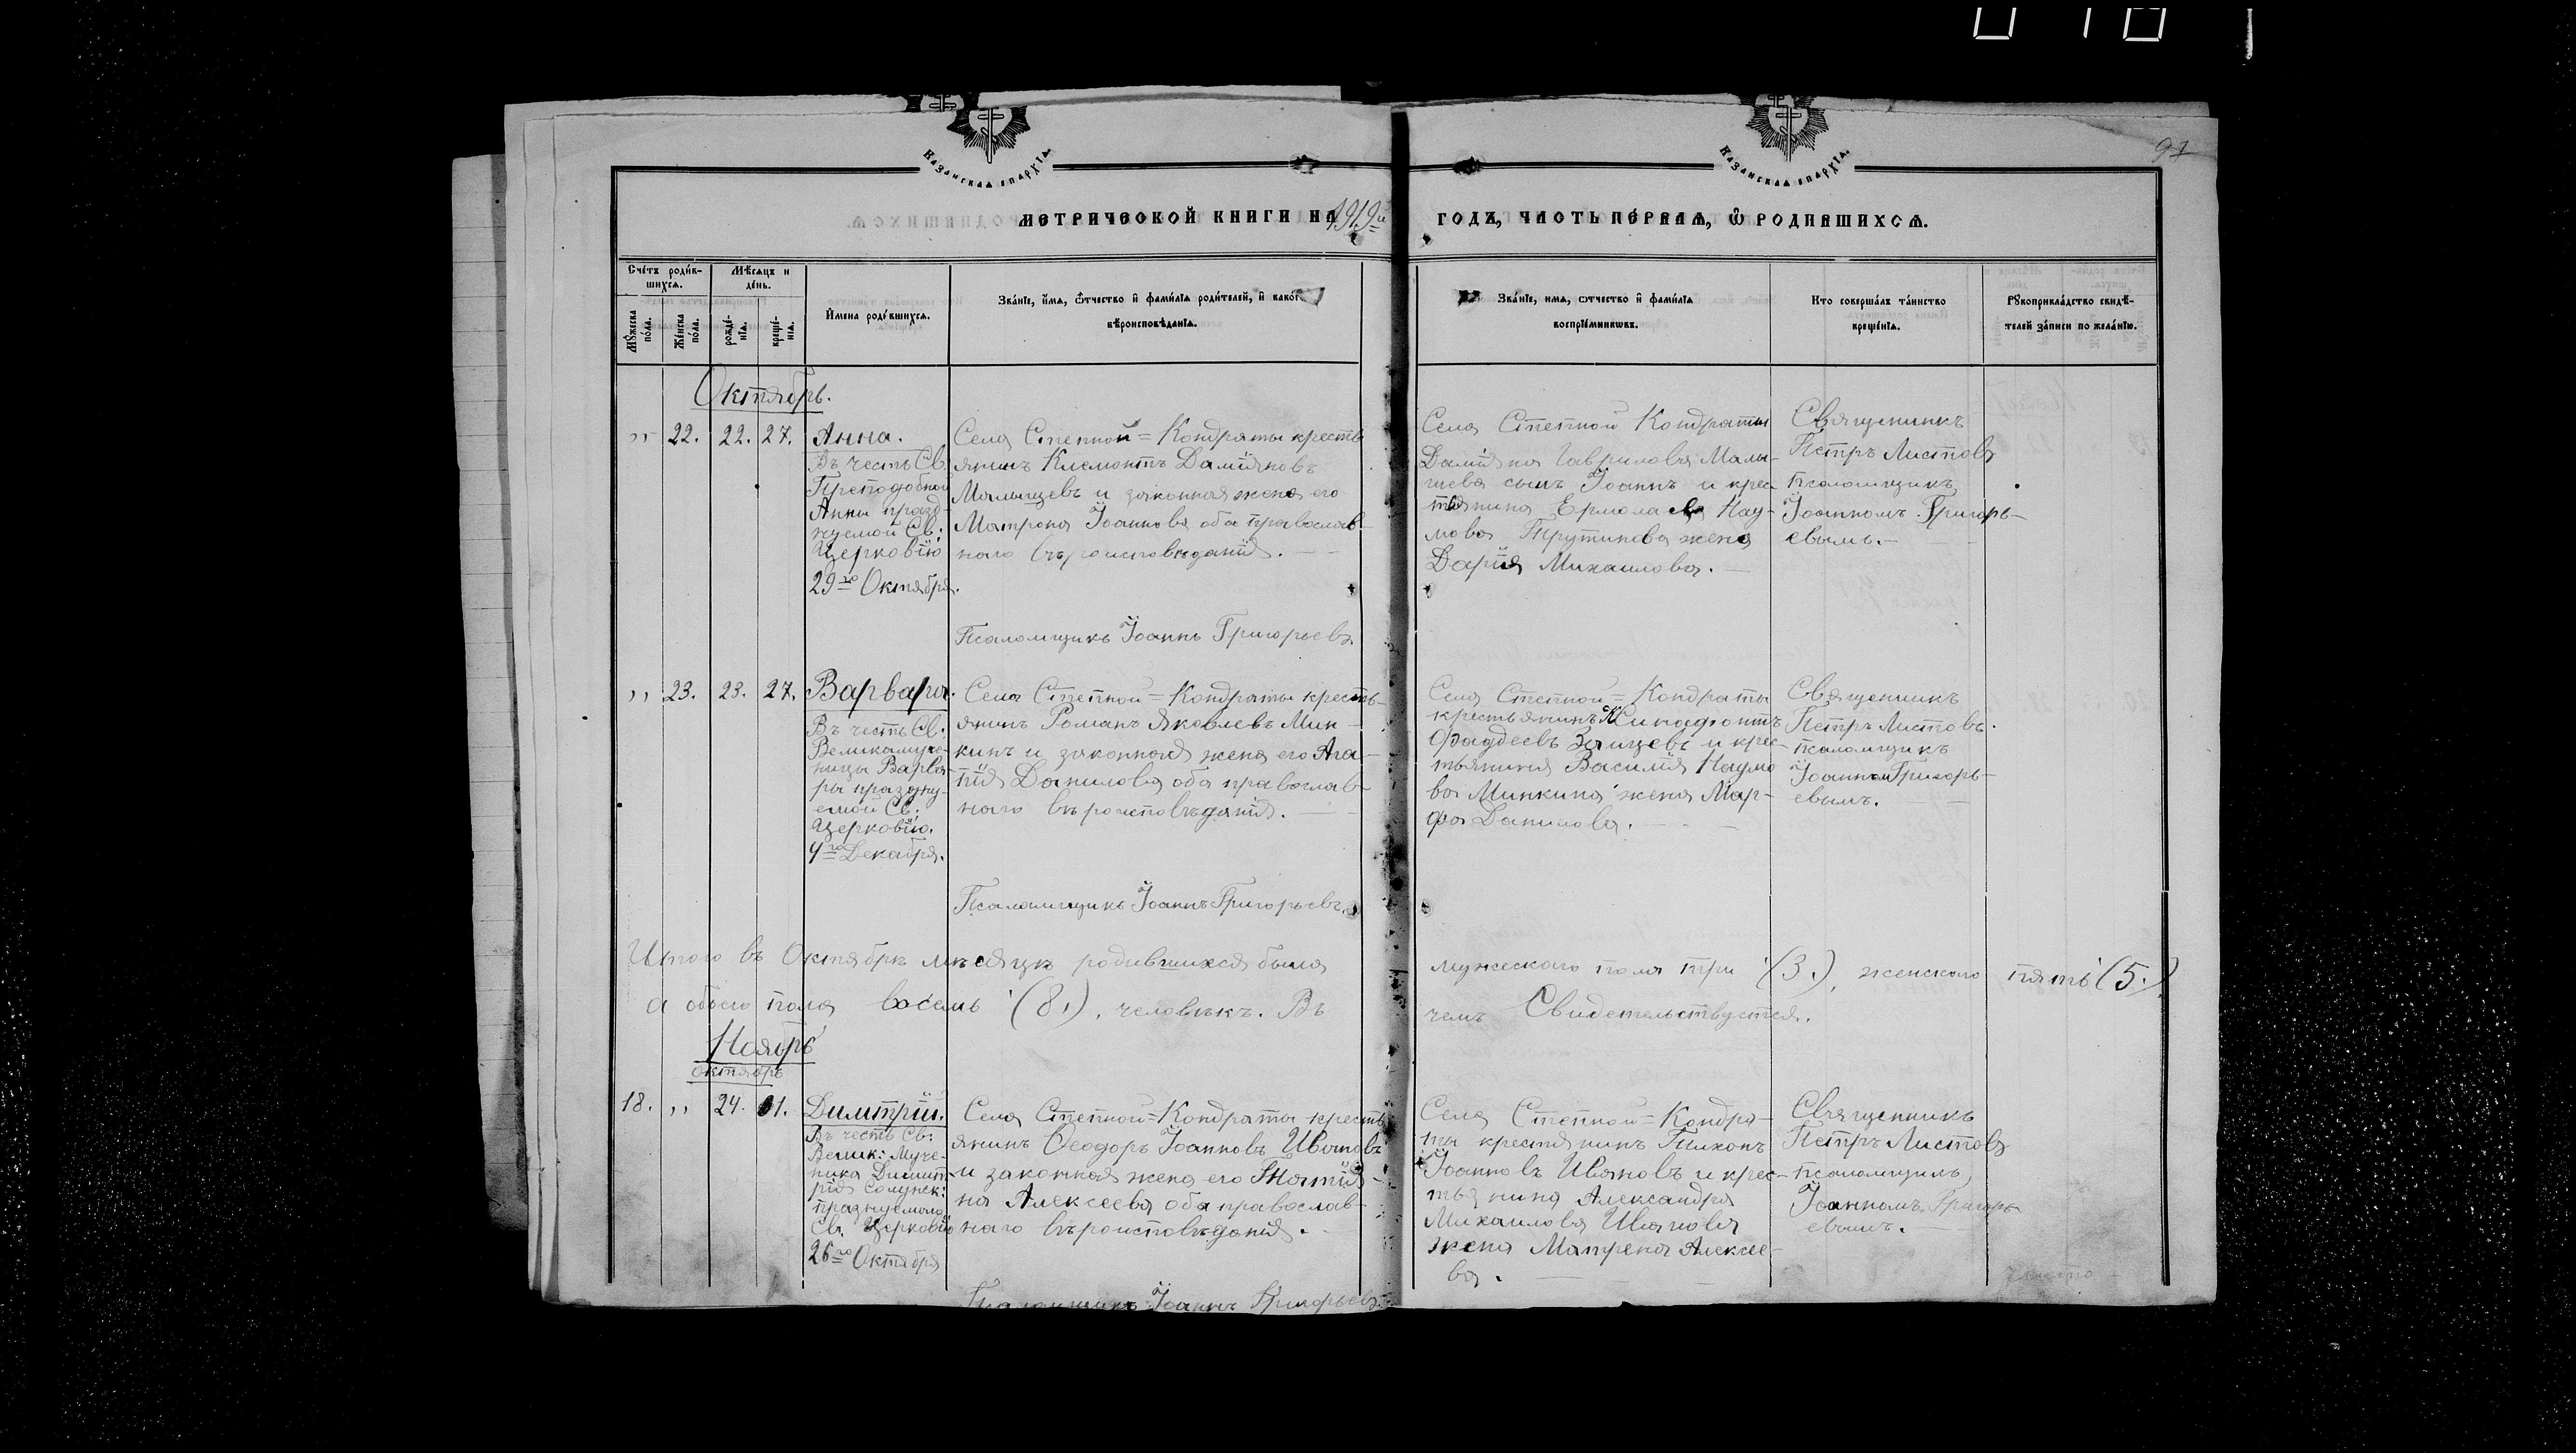 97
КАЗАНСКАѦ ЕПАРХІѦ.
КАЗАНСКАѦ ЕПАРХІѦ.
МЕТРИЧЕСКОЙ КНИГИ НА 1919й ГОДЪ, ЧАСТЬ ПЕРВАѦ, Ѽ РОДИВШИХСѦ.
Сче́тъ роди́в-
шихсѧ.
Мꙋ́жеска
по́ла.
Же́нска
по́ла.
Мѣ́сѧцъ и
де́нь.
рожде́-
нїѧ.
креще́-
нїѧ.
И҆мена роди́вшихсѧ.
Зва́нїе, и҆́мѧ, ѻ҆́тчество и҆ фами́лїѧ роди́телей, и҆ како́г
вѣроисповѣ́данїѧ.
Зва́нїе, имѧ, ѻтчество и҆ фами́лїѧ
воспрїе́мникѡвъ.
Кто соверша́лъ та́инство
креще́нїѧ.
Рꙋкоприкла́дство свидѣ́-
телей за́писи по жела́нїю.
Октябрь.
,, 22. 22. 27. Анна.
Въ честь Св.
Преподобной
Анны празд-
нуемой Св:
Церковію
29го Октября.
Села Степной=Кондраты кресть
янинъ Климонтъ Даміановъ
Малышевъ и законная жена его
Матрона Іоаннова оба православ-
наго вѣроисповѣданія.
Псаломщикъ Іоаннъ Григорьевъ.
Села Степной Кондраты
Даміяна Гаврилова Малы-
шева сынъ Іоаннъ и крес-
тьянина Ермолаева Нау-
мова Прутикова жена
Дарія Михаилова.
Священникъ
Петръ Листовъ
Псаломщикъ
Іоанномъ Григорь-
евымъ.
,, 23. 23. 27. Варвара.
Въ честь Св:
Великомуче-
ницы Варва-
ры праздну-
емой Св:
Церковію.
4го Декабря.
Села Степной=Кондраты кресть-
янинъ Романъ Яковлевъ Мин-
кинъ и законная жена его Ага-
пія Данилова оба православ-
наго вѣроисповѣданія.
Псаломщикъ Іоаннъ Григорьевъ.
Села Степной=Кондраты
крестьянинъ Ксинофонтъ
Фаддеевъ Зайцевъ и крес-
тьянина Василія Наумо
ва Минкина жена Мар-
фа Данилова.
Священникъ
Петръ Листовъ.
псаломщикъ
Іоанномъ Григорь-
евымъ.
Итого въ Октябрѣ мѣсяцѣ родившихся было мужескаго пола три (3.), женскаго пять (5.)
а обоего пола восемь (8.), человѣкъ. Въ чемъ Свидетельствуется.
Ноябрь
октябрь
18. ,, 24. 1. Димитрій.
Въ честь Св:
Велик: Муче-
ника Димит
рія Солунск:
празнуемаго
Св. Церковію
26го Октября
Села Степной=Кондраты кресть
янинъ Ѳеодоръ Іоанновъ Ивановъ
и законная жена его Татія-
на Алексеева оба православ-
наго вѣроисповѣданія.
Псаломщикъ Іоаннъ Григорьевъ.
Села Степной=Кондра-
ты крестянинъ Тихонъ
Іоанновъ Ивановъ и крес-
тьянина Александра
Михаилова Иванова
жена Матрена Алексее-
ва.
Священникъ
Петръ Листовъ
псаломщикъ
Іоанномъ Григорь-
евымъ.